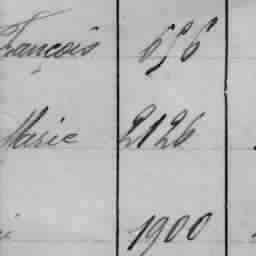 François 656
Marie 2126
1900